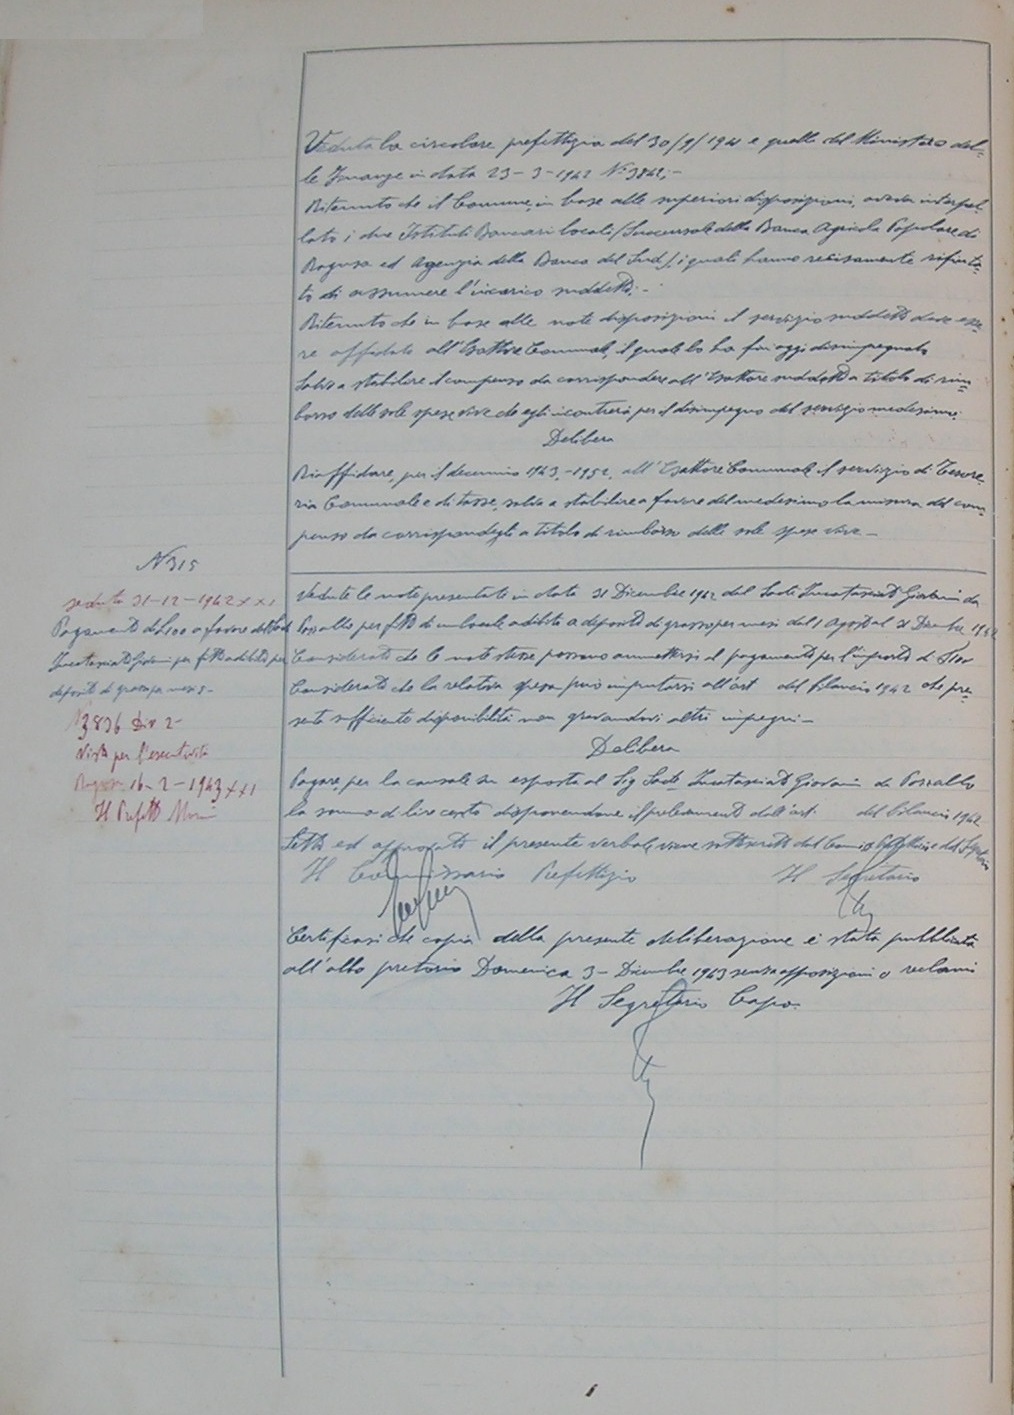 Veduta la circolare prefettizia del 30/9/1941 e quella del Ministero del-
le Finanze in data 23-3-1942 N° 3842;-
Ritenuto che il Comune, in base alle superiori disposizioni, aveva interpel-
lato i due Istituti Bancari locali/Succursale della Banca Agricola Popolare di
Ragusa ed Agenzia della Banca del Sud/, i quali hanno recisamente rifiuta-
to di assumere l'incarico suddetto;-
Ritenuto che in base alle note disposizioni il servizio suddetto deve esse-
re affidato all'Esattore Comunale, il quale lo ha fin oggi disimpegnato
Salvo a stabilire il compenso da corrispondere all'Esattore suddetto a titolo di rim-
borso delle sole spese vive che egli incontrerà per il disimpegno del servizio medesimo.
Delibera
Riaffidare, per il decennio 1943-1952, all'Esattore Comunale il servizio di Tesore-
ria Comunale e di tasse, salvo a stabilire a favore del medesimo la misura del com-
penso da corrispondergli a titolo di rimborso delle sole spese vive-
N 315
seduta 31-12-1942 XXI
Pagamento di L 100 a favore del
Giovanni per fitto adibito per
deposito di grassi per mesi 5-
N 3896 Div 2-
Visto per l'esecutività
Ragusa 16-2-1943 XXI
Il Prefetto
Vedute le note presentate in data 31 Dicembre 1942 dal Giovanni da
Pozzallo per fitto di un locale adibito a deposito di grassi per mesi dal 1 Agosto al 31 Dicembre 1942
Considerato che le note stesse possono ammettersi al pagamento per l'importo di
Considerato che la relativa spesa può imputarsi all'art del bilancio 1942 che pre-
senta sufficiente disponibilità non gravandovi altri impegni-
Delibera
Pagare, per la causale su esposta al Sig Giovanni da Pozzallo
la somma di lire cento disponendone il prelevamento dall'art. del bilancio 1942
Letto ed approvato il presente verbale viene sottoscritto dal e dal Segretario
Il Commissario Prefettizio Il Segretario
Certificasi che copia della presente deliberazione è stata pubblicata
all'albo pretorio Domenica 3- Dicembre 1943 senza opposizioni o reclami
Il Segretario Capo.